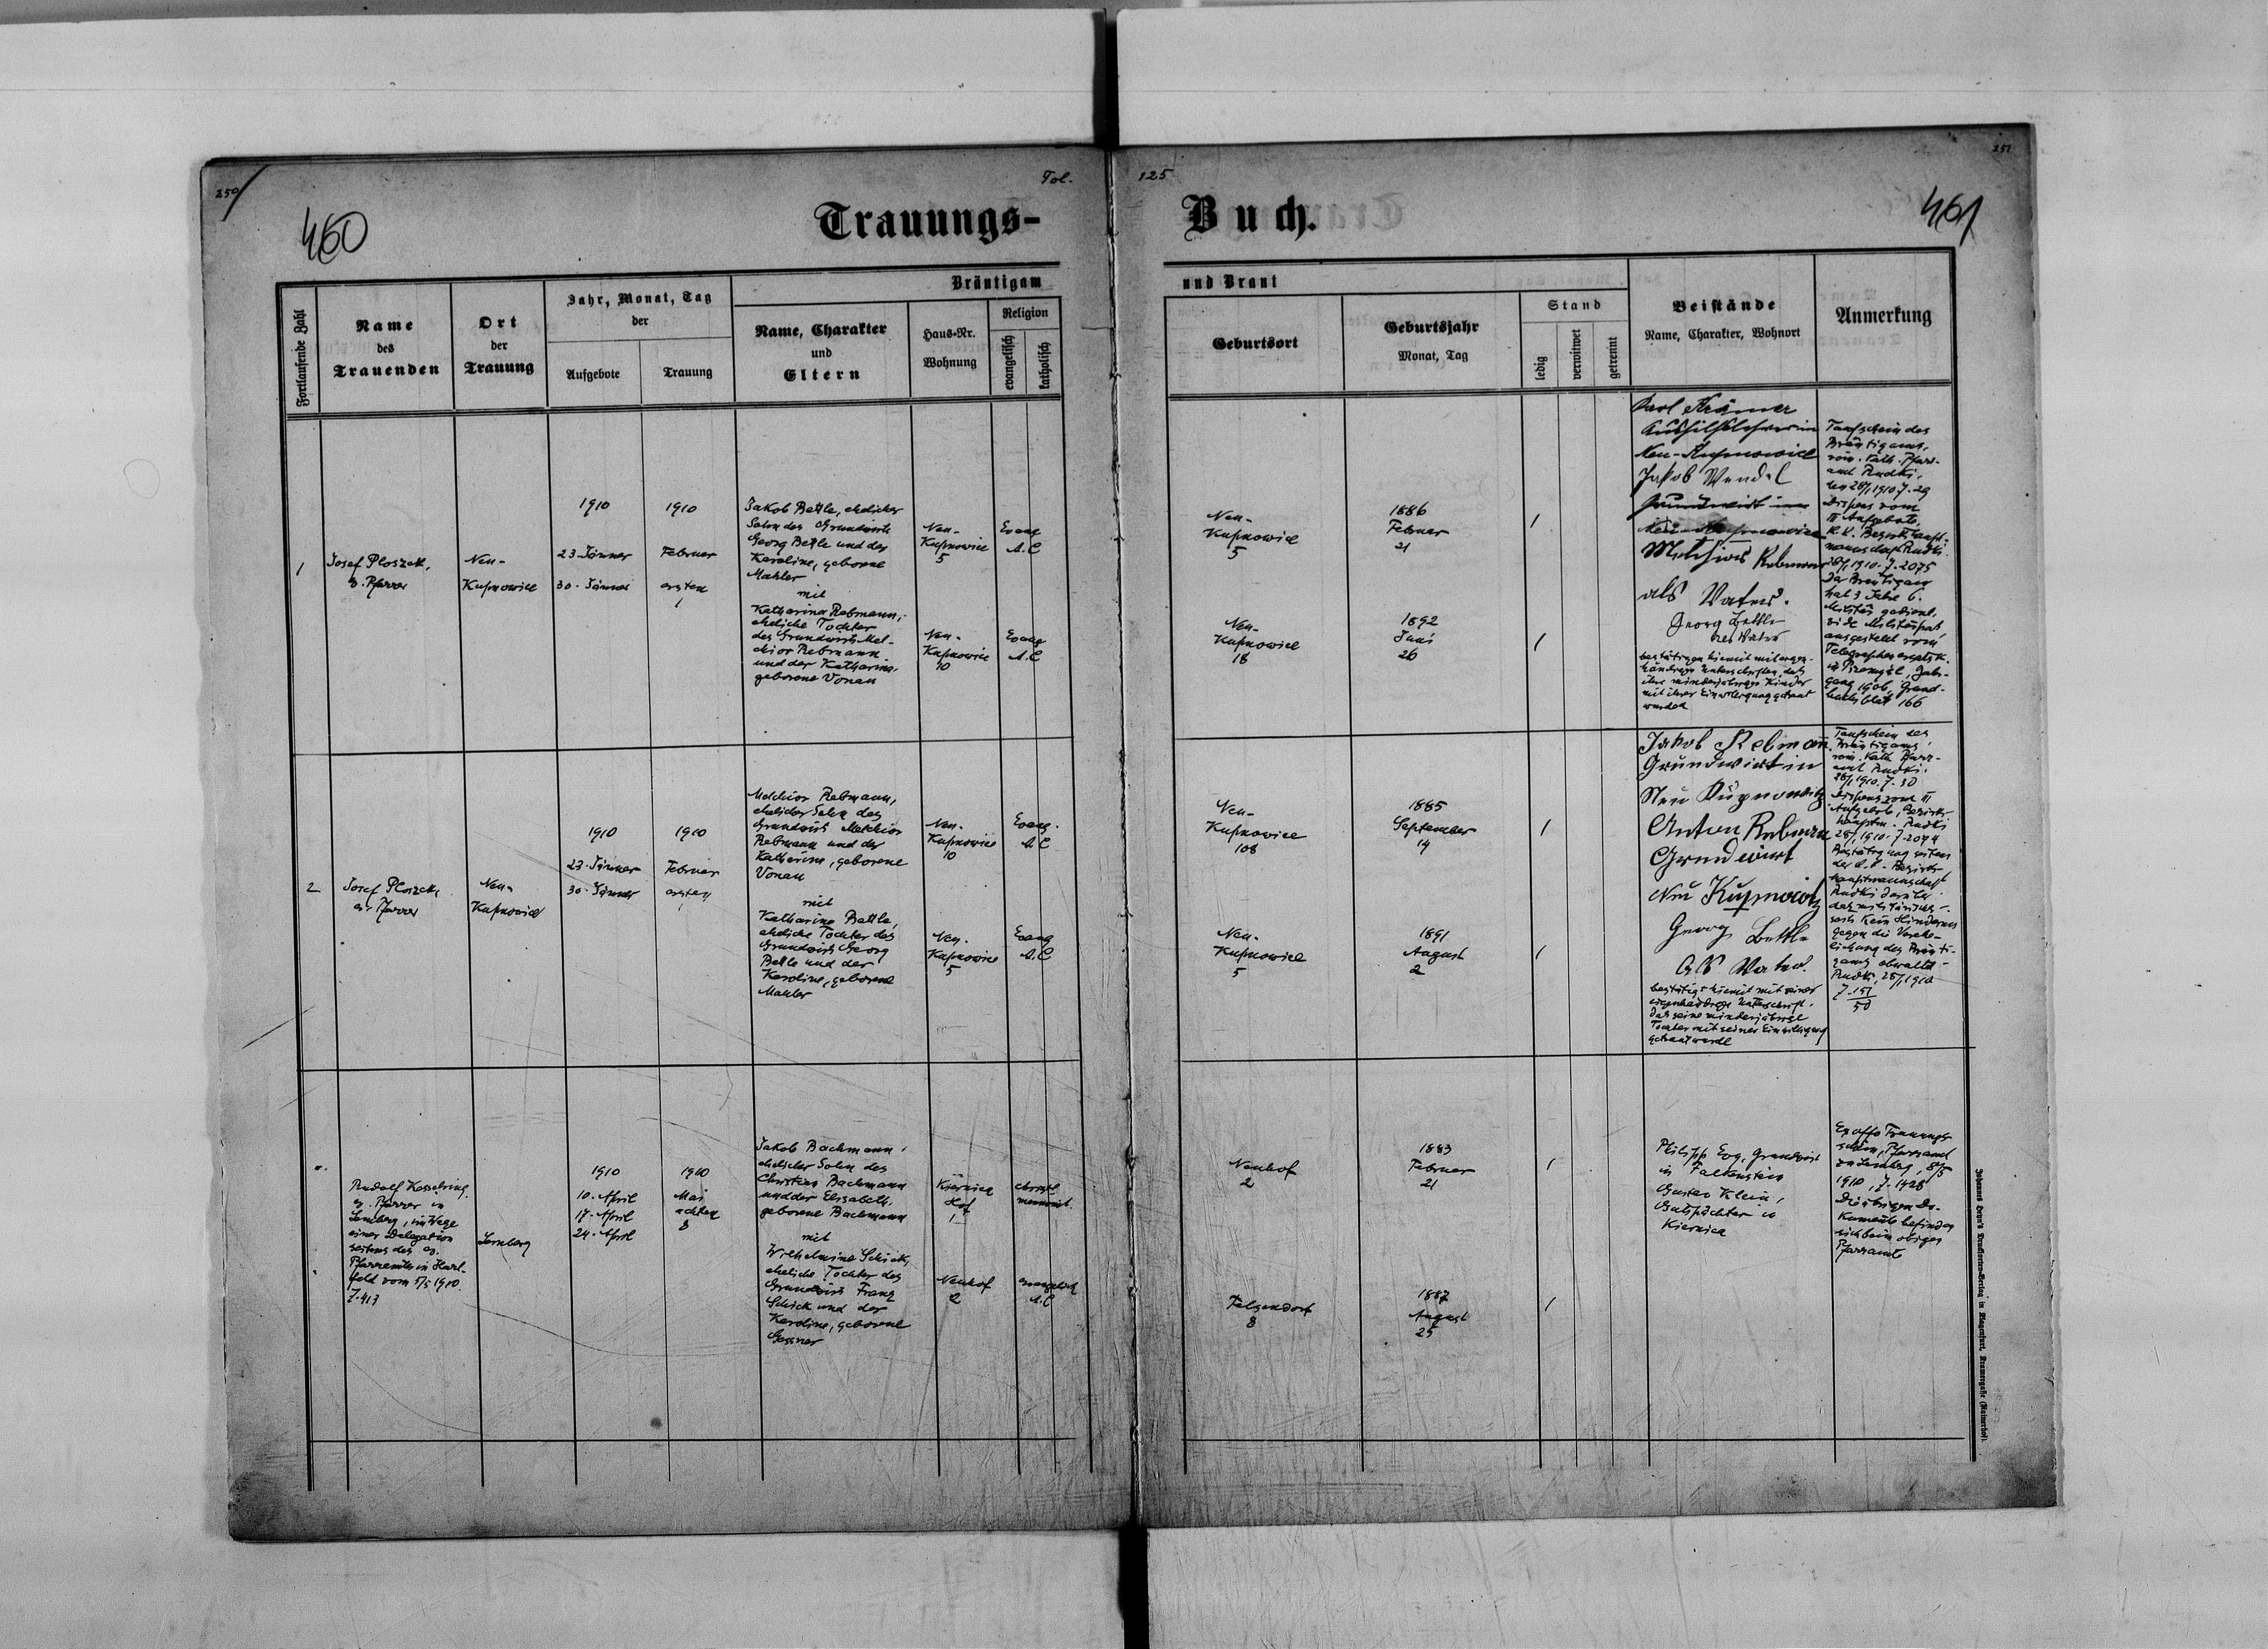 250
Fol.
125
251
460
Trauungs-
Buch.
461
Fortlaufende Zahl
Name
des
Trauenden
Ort
der
Trauung
Jahr, Monat, Tag
der
Aufgebote
Trauung
Bräutigam
Name, Charakter
und
Eltern
Haus-Nr.
Wohnung
Religion
evangelisch
katholisch
und Braut
Geburtsort
Geburtsjahr
Monat, Tag
Stand
ledig
verwitwet
getrennt
Beistände
Name, Charakter, Wohnort
Anmerkung
1
Josef Ploszek,
ev. Pfarrer
Neu-
Kupnowice
1910
23. Jänner
30. Jänner
1910
Februar
ersten
1
Jakob Bettle, ehelicher
Sohn des Grundwirts
Georg Bettle und der
Karoline, geborene
Mahler
mit
Katharina Rebmann,
eheliche Tochter
des Grundwirts Mel-
chior Rebmann
und der Katharina,
geborene Vonau
Neu-
Kupnowice
5
Evang
A. C
Neu-
Kupnowice
10
Evang
A. C
Neu-
Kupnowice
5
1886
Februar
21
1
Neu-
Kupnowice
18
1892
Juni
26
1
Karl Krämer
Aushilfslehrer in
Neu-Kupnowice
Jakob Wendel
Grundwirt in
Neu-Kupnowice
Melchior Rebmann
als Vater.
Georg Bettle
als Vater
bestätigen hiemit mit eigen-
händiger Unterschriften, daß
ihre minderjährigen Kinder
mit ihrer Einwilligung getraut
wurden
Taufschein des
Bräutigams,
röm. Kath. Pfarr-
amt Rudki,
den 28/1 1910 Z. 29
Dispens vom
III Aufgebote,
K. K. Bezirkshaupt-
mannschaft Rudki
28/1 1910. Z. 2075
Der Bräutigam
hat 3 Jahre b.
Militär gedient,
vide Militärpaß
ausgestellt vom
in Przemysl, Jahr-
gang 1906, Grund-
buchsblatt 166
2
Josef Ploszek
ev. Pfarrer
Neu-
Kupnowice
1910
23. Jänner
30. Jänner
1910
Februar
ersten
1
Melchior Rebmann,
ehelicher Sohn des
Grundwirts Melchior
Rebmann und der
Katharina, geborene
Vonau
mit
Katharina Bettle,
eheliche Tochter des
Grundwirts Georg
Bettle und der
Karoline, geborene
Mahler
Neu-
Kupnowice
10
Evang.
A. C
Neu-
Kupnowice
5
Evang
A. C
Neu-
Kupnowice
108
1885
September
14
1
Neu-
Kupnowice
5
1891
August
2
1
Jakob Rebmann
Grundwirt in
Neu Kupnowitz
Anton Rebmann
Grundwirt
Neu Kupnowitz
Georg Bettle
als Vater.
bestätigt hiemit mit seiner
eigenhändigen Unterschrift,
daß seine minderjährige
Tochter mit seiner Einwilligung
getraut wurde
Taufschein des
Bräutigams,
röm. Kath. Pfarr-
amt Rudki.
28/1 1910. Z. 30
Dispens vom III
Aufgebote, Bezirks-
hauptm. Rudki
28/1 1910. Z. 2074
Bestätigung seitens
der K. K. Bezirks-
hauptmannschaft
Rudki darüber
daß militärischer-
seits kein Hindernis
gegen die Verehe-
lichung des Bräuti-
gams obwaltet -
Rudki, 28/1 1910
Z. 151
50
Rudolf Kesselring,
ev. Pfarrer in
Lemberg, im Wege
einer Delegation
seitens des ev.
Pfarramtes in Hart-
feld vom 5/5 1910.
Z. 413
Lemberg
1910
10. April
17. April
24. April
1910
Mai
achten
8
Jakob Bachmann,
ehelicher Sohn des
Christian Bachmann
und der Elisabeth,
geborene Bachmann
mit
Wilhelmine Schick,
eheliche Tochter des
Grundwirts Franz
Schick und der
Karoline, geborene
Gessner
Kiernica
Hof
1
christl.
mennonit.
Neuhof
2
evangelisch
A. C
Neuhof
2
1883
Februar
21
1
Falkendorf
8
1887
August
25
1
Philipp Grundwirt
in Falkenstein
Gustav Klein,
Gutspächter in
Kiernica
Ex offo Trauungs-
schein, Pfarramt
in Lemberg, 8/5
1910, Z. 1428
Die übrigen Do-
kumente befinden
sich beim obigen
Pfarramte
Johannes Heyn's Drucksorten-Verlag in Klagenfurt, Kramergasse